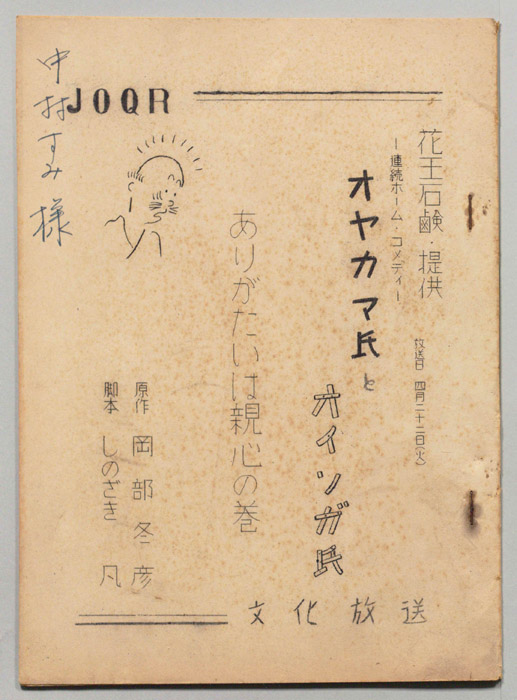 JOQR
中村すみ様
花王石鹸・提供
ー連続ホーム・コメディー
オヤカマ氏と
オイソガ氏
放送日 四月二十二日(火)
ありがたいは親心の巻
原作 岡部冬彦
脚本 しのざき 凡
文化放送